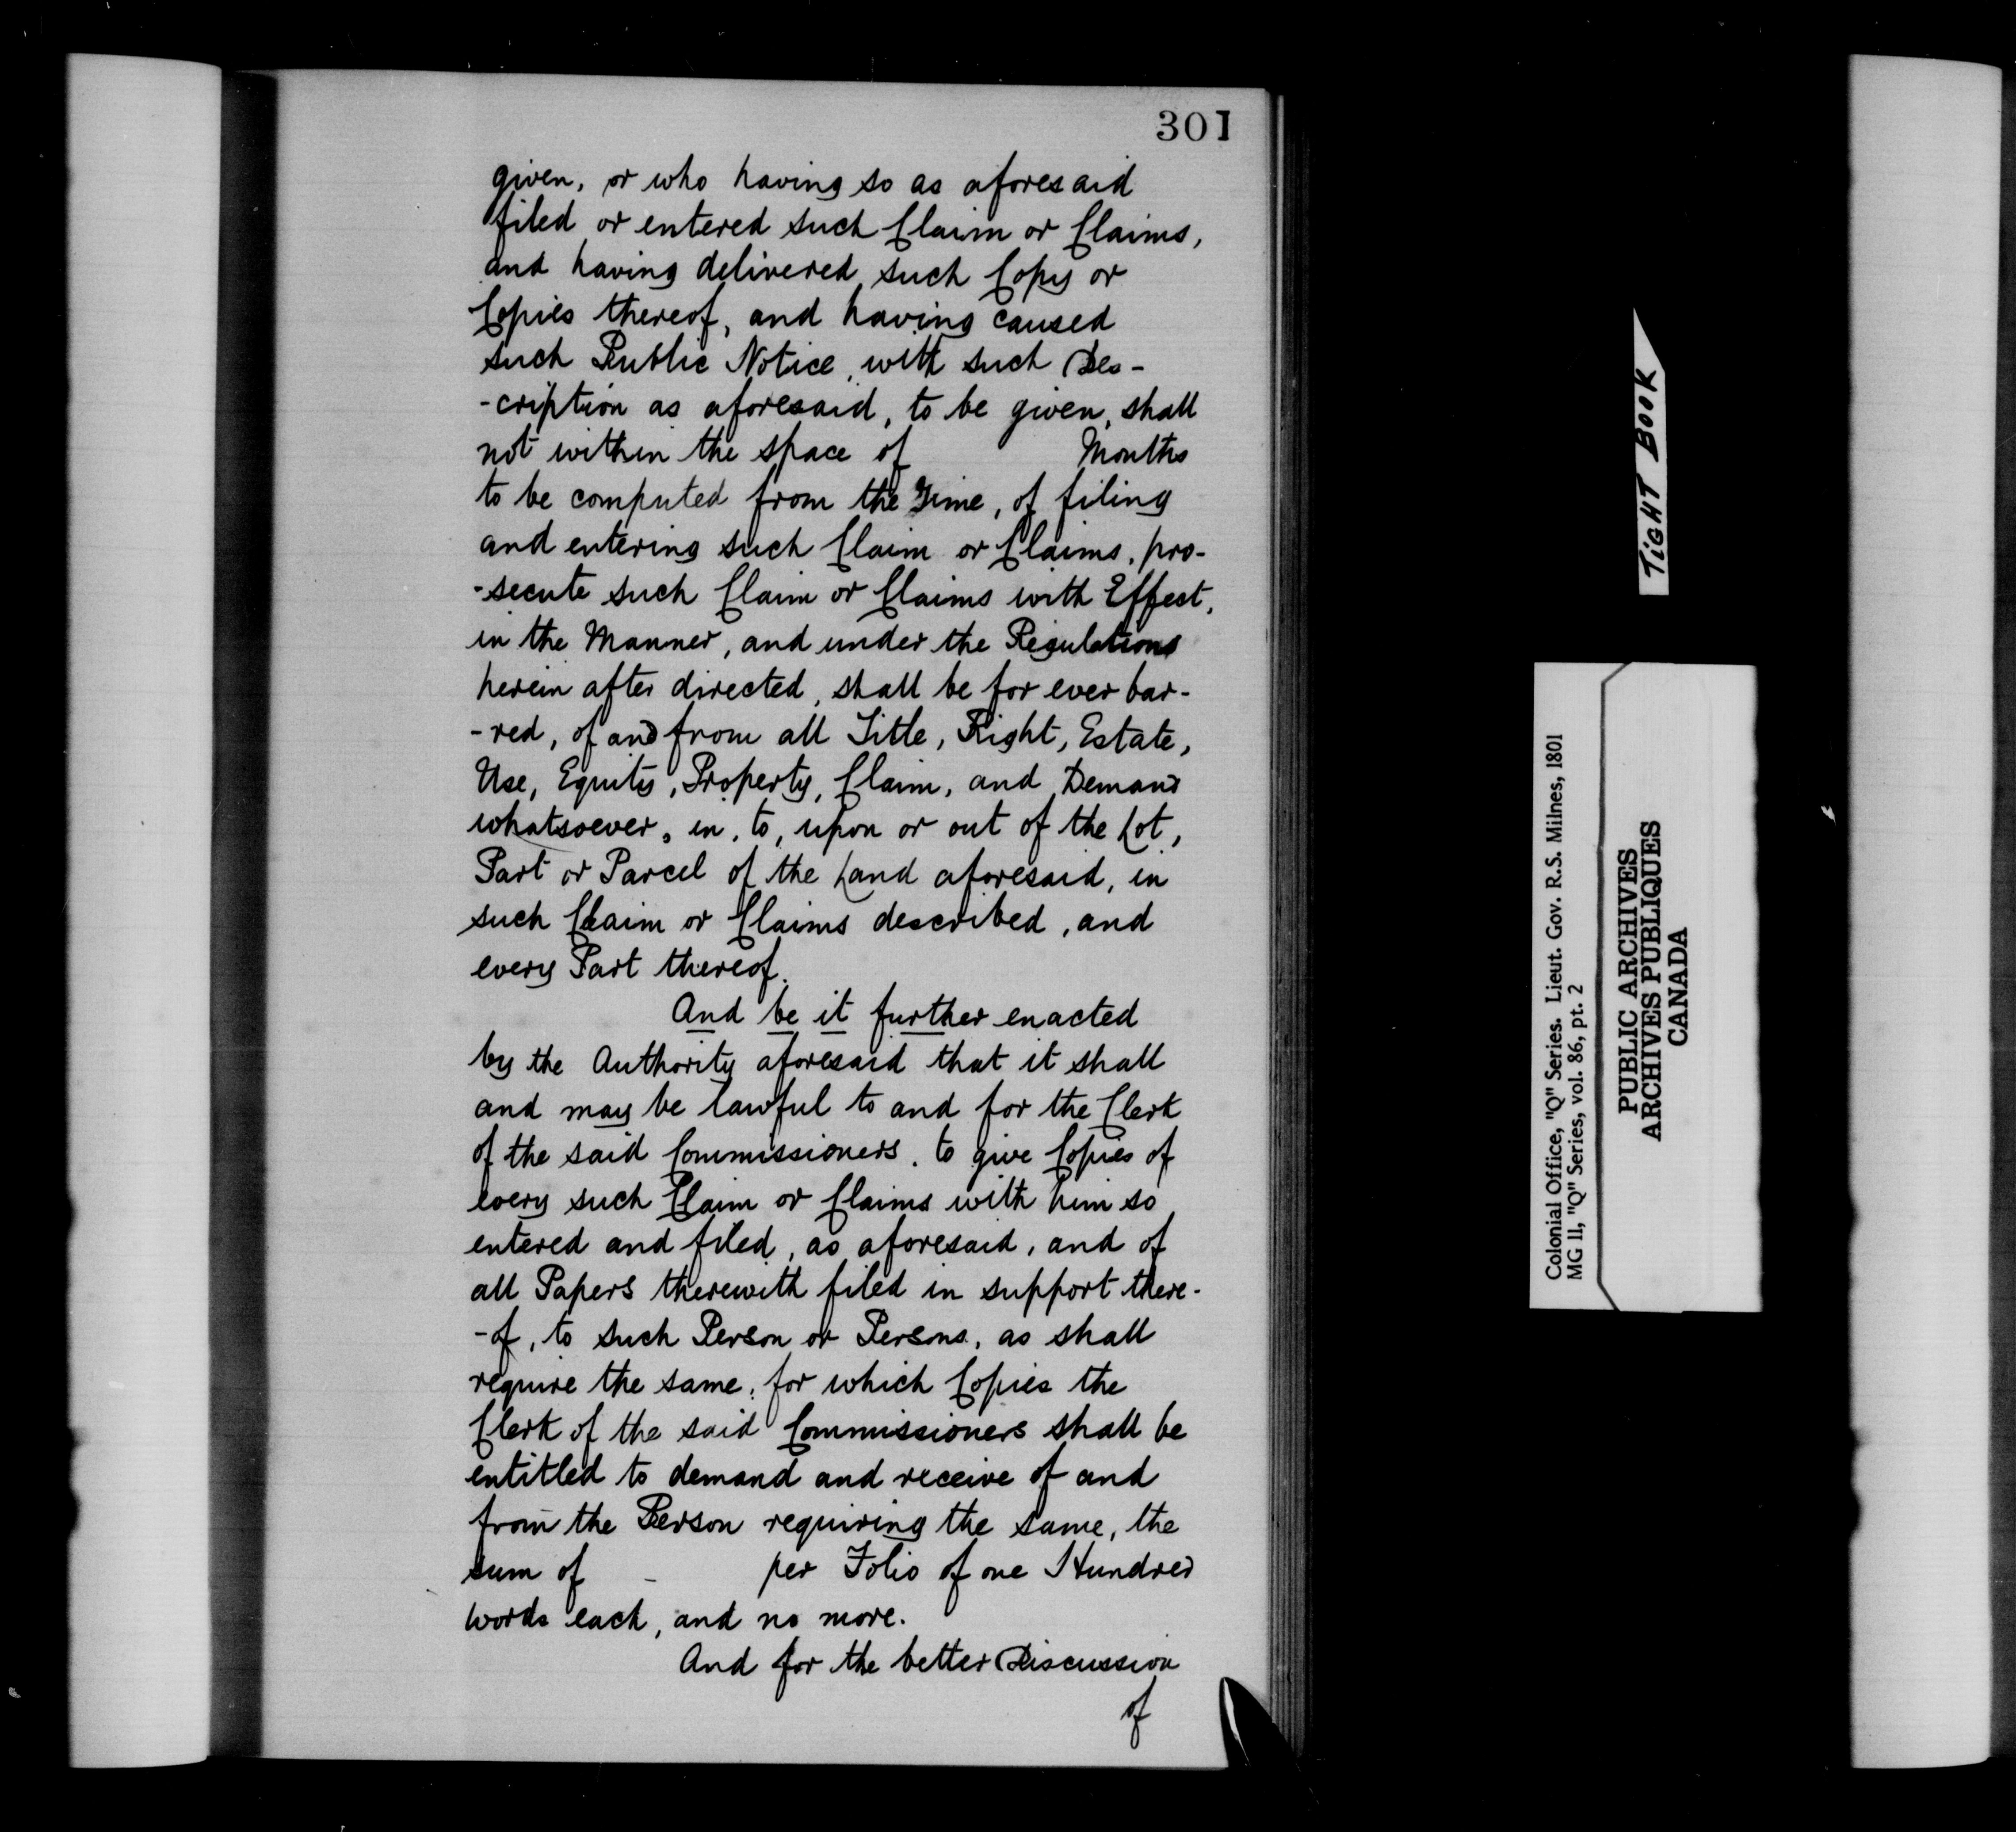 301
given, or who having so as aforesaid
filed or entered such Claim or Claims,
and having delivered such Copy or
Copies thereof, and having caused
such Public Notice, with such Des-
-cription as aforesaid, to be given, shall
not within the space of Months
to be computed from the Time, of filing
and entering such Claim or Claims, pro-
-secute such Claim or Claims with Effect,
in the Manner, and under the Regulations
herein after directed, shall be for ever bar-
-red, of and from all Title, Right, Estate,
Use, Equity, Property, Claim, and Demand
whatsoever, in, to, upon or out of the Lot,
Part or Parcel of the Land aforesaid, in
such Claim or Claims described, and
every Part thereof.
And be it further enacted
by the Authority aforesaid that it shall
and may be lawful to and for the Clerk
of the said Commissioners, to give Copies of
every such Claim or Claims with him so
entered and filed, as aforesaid, and of
all Papers therewith filed in support there-
-of, to such Person or Persons, as shall
require the same, for which Copies the
Clerk of the said Commissioners shall be
entitled to demand and receive of and
from the Person requiring the same, the
sum of - per Folio of one Hundred
words each, and no more.
And for the better Discussion
of
TiGHT BOOK
Colonial Office, "Q" Series. Lieut. Gov. R.S. Milnes, 1801
MG 11, "Q" Series, vol. 86, pt. 2
PUBLIC ARCHIVES
ARCHIVES PUBLIQUES
CANADA